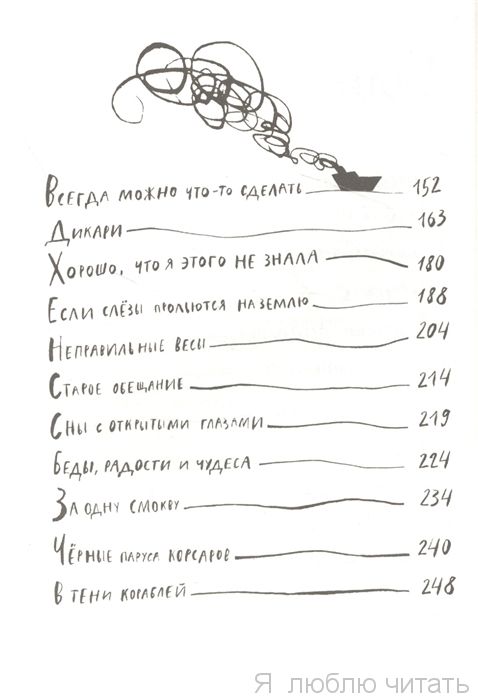 Всегда можно что-то сделать 152
Дикари 163
Хорошо, что я этого не знала 180
Если слёзы прольются на землю 188
Неправильные весы 204
Старое обещание 214
Сны с открытыми глазами 219
Беды, радости и чудеса 224
За одну смокву 234
Чёрные паруса корсаров 240
В тени кораблей 248
Я люблю читать